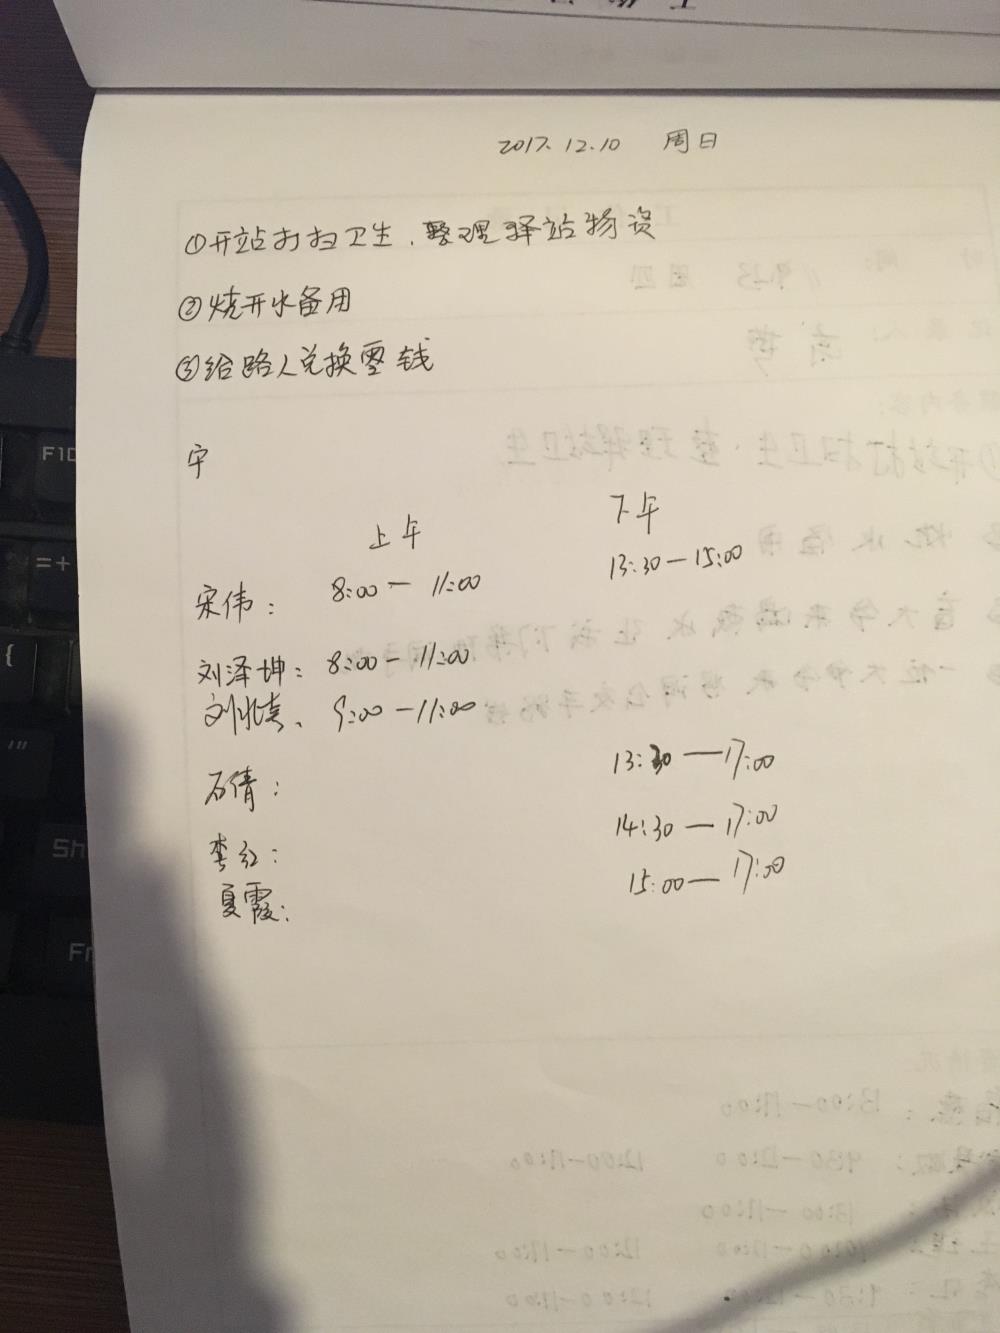 2017.12.10 周日
①开站打扫卫生、整理驿站物资
②烧开水备用
③给路人兑换零钱
上午 下午
宋伟: 8:00 — 11:00 13:30 — 15:00
刘泽坤: 8:00 — 11:00
9:00 — 11:00
石倩: 13:30 — 17:00
李红: 14:30 — 17:00
夏霞: 15:00 — 17:00
F10
=+
{
"'
Sh